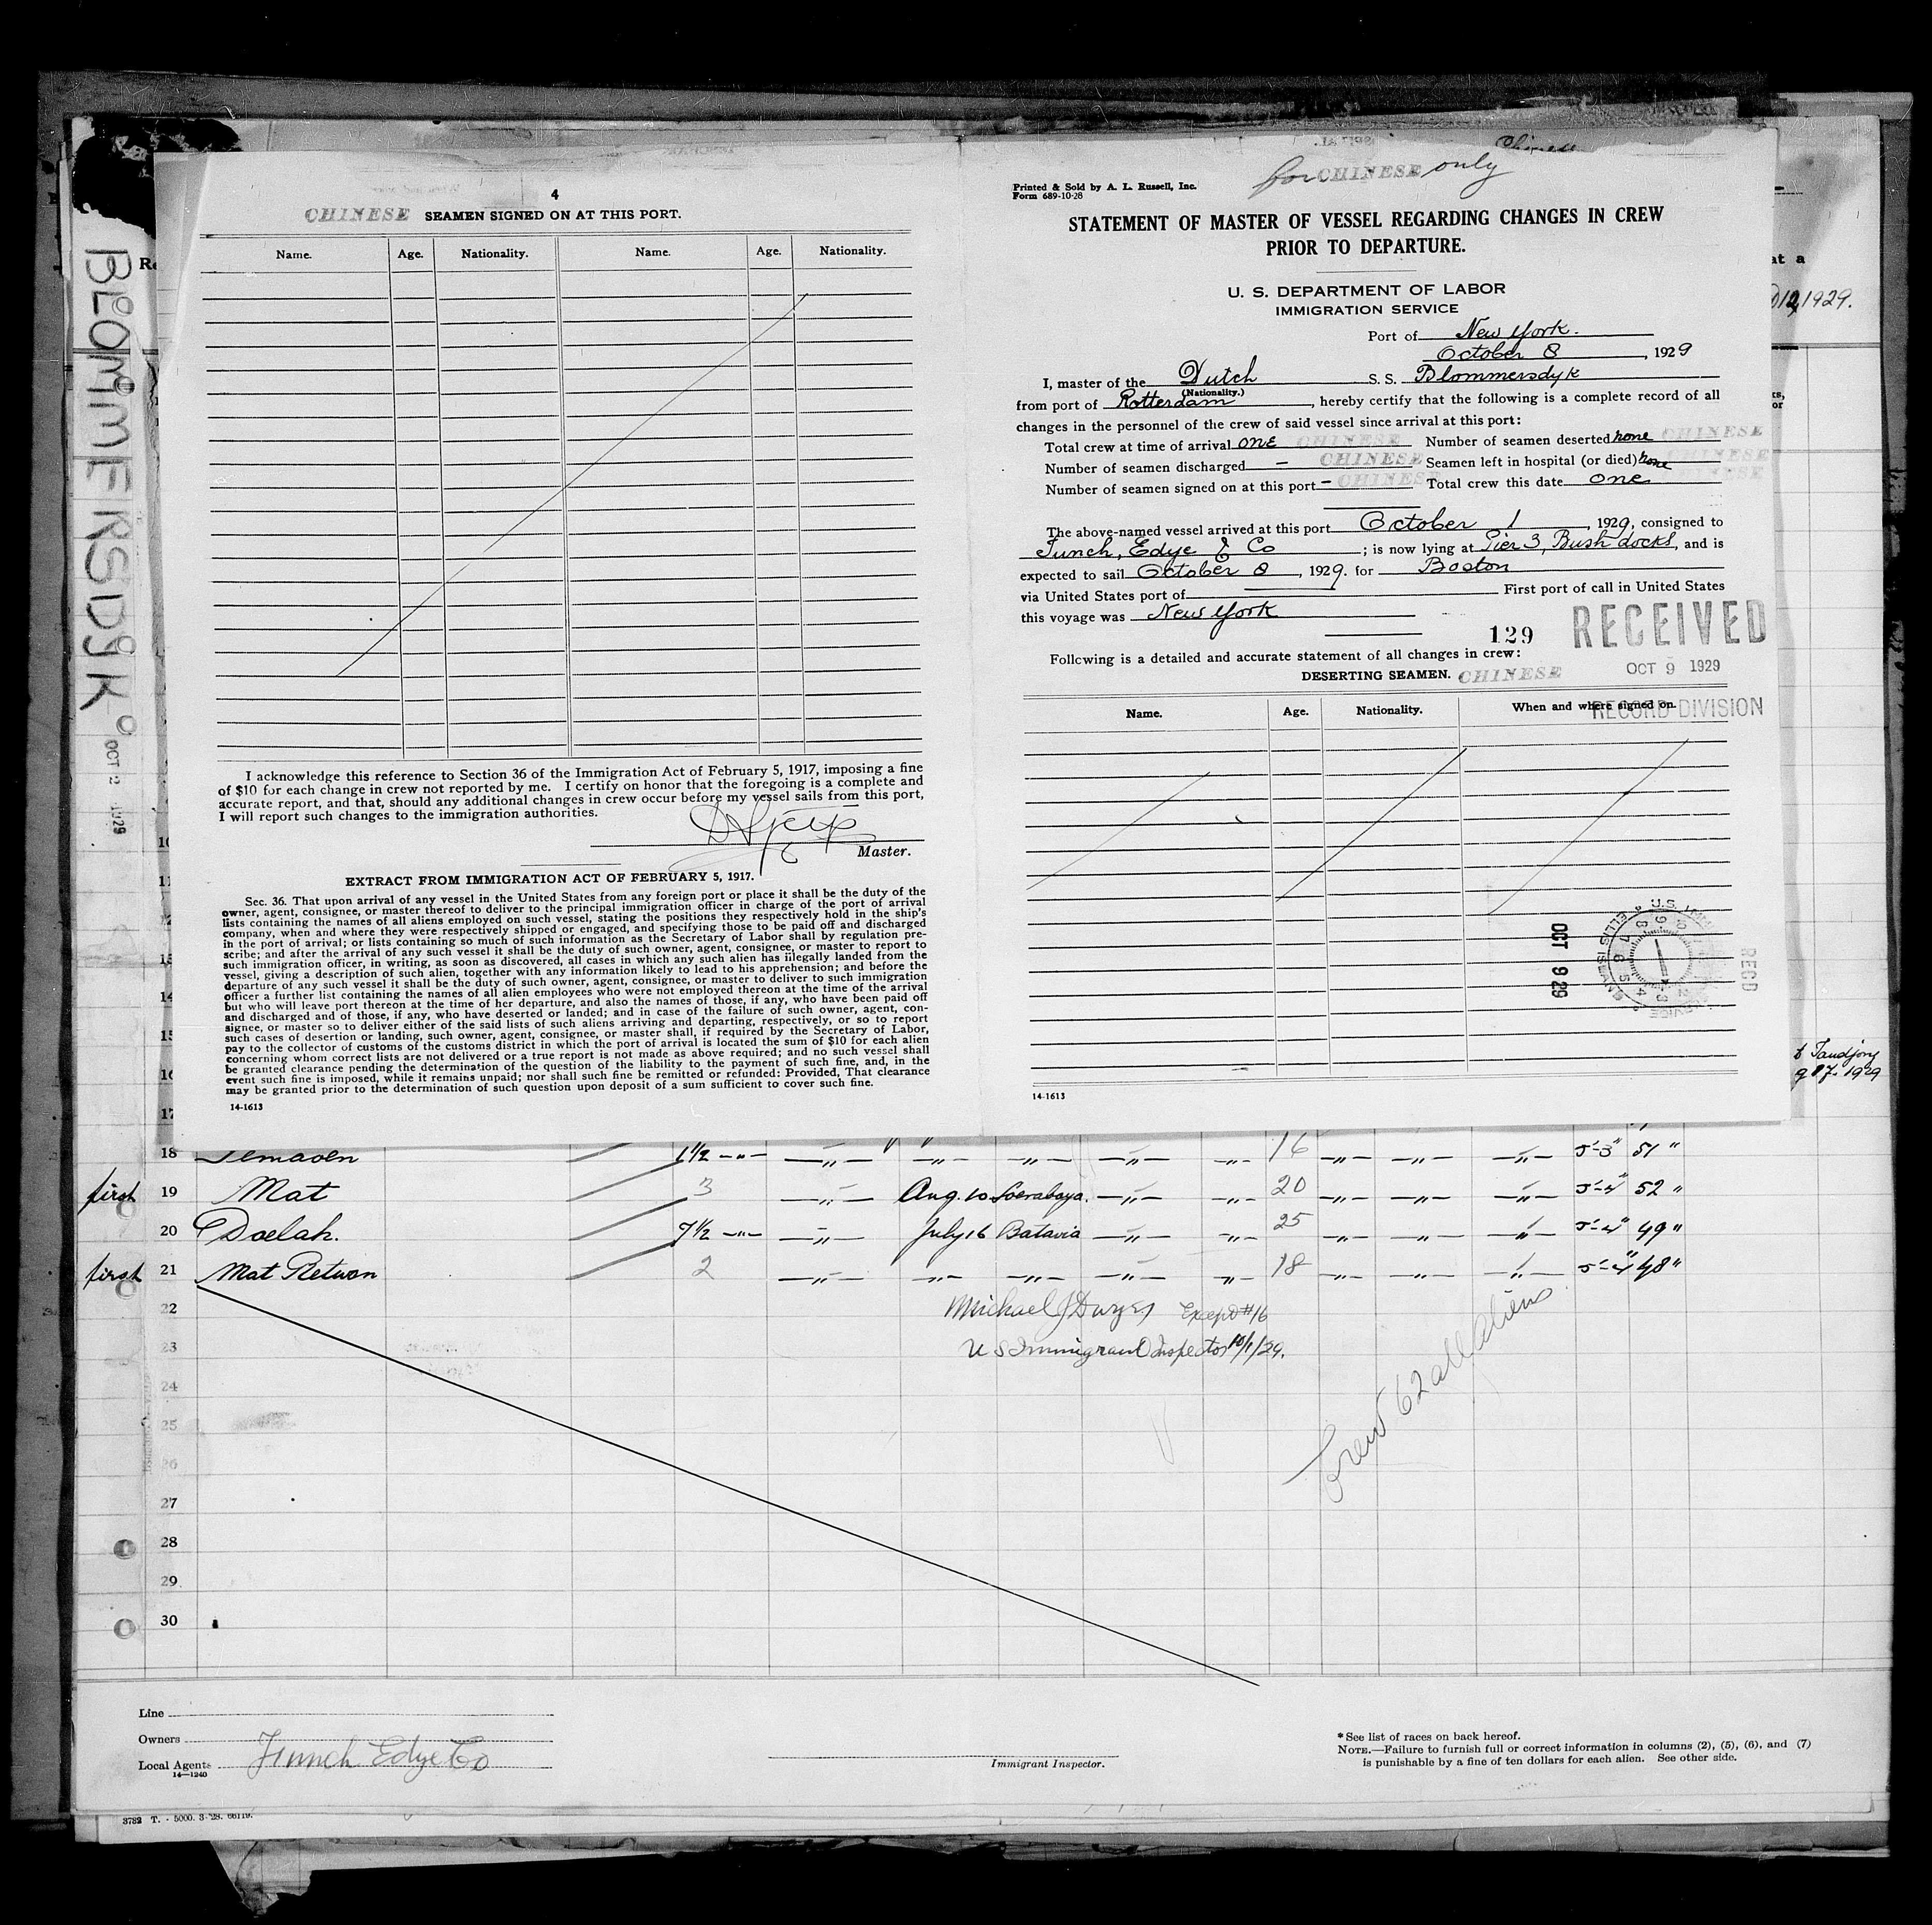 4
CHINESE SEAMEN SIGNED ON AT THIS PORT.
Name. Age. Nationality. Name. Age. Nationality.
I acknowledge this reference to Section 36 of the Immigration Act of February 5, 1917, imposing a fine
of $10 for each change in crew not reported by me. I certify on honor that the foregoing is a complete and
accurate report, and that, should any additional changes in crew occur before my vessel sails from this port,
I will report such changes to the immigration authorities.
Master.
EXTRACT FROM IMMIGRATION ACT OF FEBRUARY 5, 1917.
Sec. 36. That upon arrival of any vessel in the United States from any foreign port or place it shall be the duty of the
owner, agent, consignee, or master thereof to deliver to the principal immigration officer in charge of the port of arrival
lists containing the names of all aliens employed on such vessel, stating the positions they respectively hold in the ship's
company, when and where they were respectively shipped or engaged, and specifying those to be paid off and discharged
in the port of arrival; or lists containing so much of such information as the Secretary of Labor shall by regulation pre-
scribe; and after the arrival of any such vessel it shall be the duty of such owner, agent, consignee, or master to report to
such immigration officer, in writing, as soon as discovered, all cases in which any such alien has illegally landed from the
vessel, giving a description of such alien, together with any information likely to lead to his apprehension; and before the
departure of any such vessel it shall be the duty of such owner, agent, consignee, or master to deliver to such immigration
officer a further list containing the names of all alien employees who were not employed thereon at the time of the arrival
but who will leave port thereon at the time of her departure, and also the names of those, if any, who have been paid off
and discharged and of those, if any, who have deserted or landed; and in case of the failure of such owner, agent, con-
signee, or master so to deliver either of the said lists of such aliens arriving and departing, respectively, or so to report
such cases of desertion or landing, such owner, agent, consignee, or master shall, if required by the Secretary of Labor,
pay to the collector of customs of the customs district in which the port of arrival is located the sum of $10 for each alien
concerning whom correct lists are not delivered or a true report is not made as above required; and no such vessel shall
be granted clearance pending the determination of the question of the liability to the payment of such fine, and, in the
event such fine is imposed, while it remains unpaid; nor shall such fine be remitted or refunded: Provided, That clearance
may be granted prior to the determination of such question upon deposit of a sum sufficient to cover such fine.
14-1613
Chinese
for CHINESE only
Printed & Sold by A. L. Russell, Inc.
Form 689-10-28
STATEMENT OF MASTER OF VESSEL REGARDING CHANGES IN CREW
PRIOR TO DEPARTURE.
U. S. DEPARTMENT OF LABOR
IMMIGRATION SERVICE
Port of New York.
October 8, 1929
I, master of the Dutch S. S. Blommersdyk
(Nationality.)
from port of Rotterdam, hereby certify that the following is a complete record of all
changes in the personnel of the crew of said vessel since arrival at this port:
Total crew at time of arrival one CHINESE Number of seamen deserted none CHINESE
Number of seamen discharged - CHINESE Seamen left in hospital (or died) none CHINESE
Number of seamen signed on at this port - CHINESE Total crew this date one CHINESE
The above-named vessel arrived at this port October 1, 1929, consigned to
Funch, Edye & Co; is now lying at Pier 3, Bush docks, and is
expected to sail October 8, 1929. for Boston
via United States port of First port of call in United States
this voyage was New York
129
RECEIVED
OCT 9 1929
RECORD DIVISION
Following is a detailed and accurate statement of all changes in crew:
DESERTING SEAMEN. CHINESE
Name. Age. Nationality. When and where signed on.
OCT 9 29
REC'D
14-1613
BLOMMERSDYK
OCT 2 1929
at a
1929.
t Tandjong
g 17-1929
10
11
12
13
14
15
16
17
18 1½ -"- -"- -"- -"- -"- -"- 16 -"- -"- -"- 5'-3" 51 "
first 19 Mat 3 -"- Aug. 10 Soerabaya. -"- -"- 20 -"- -"- -"- 5'-4" 52 "
20 Doelah. 7½ -"- -"- July 16 Batavia -"- -"- 25 -"- -"- -"- 5'-4" 49 "
first 21 Mat Retwon 2 -"- -"- -"- -"- -"- 18 -"- -"- -"- 5'-4" 48 "
22 Michael J Dwyer Except #16
23 U S Immigrant Inspector 10/1/29.
Crew 62 all aliens
24
25
26
27
28
29
30
Line
Owners
Local Agents Funch Edye Co
14—1240
Immigrant Inspector.
* See list of races on back hereof.
NOTE.—Failure to furnish full or correct information in columns (2), (5), (6), and (7)
is punishable by a fine of ten dollars for each alien. See other side.
3782 T. - 5000. 3-'28. 66119.